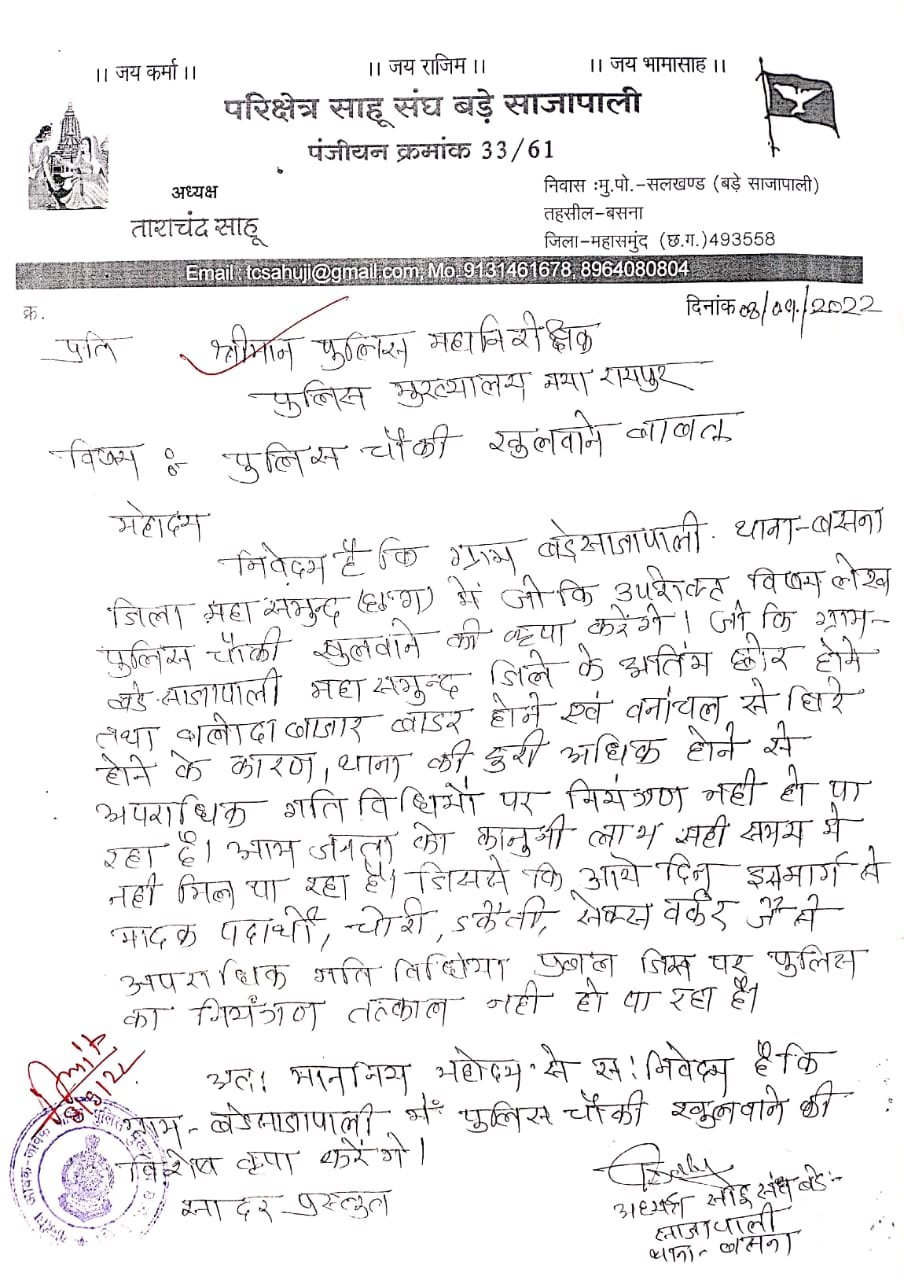 ।। जय कर्मा ।। ।। जय राजिम ।। ।। जय भामासाह ।।
परिक्षेत्र साहू संघ बड़े साजापाली
पंजीयन क्रमांक 33/61
अध्यक्ष
ताराचंद साहू
निवास :मु.पो.-सलखण्ड (बड़े साजापाली)
तहसील-बसना
जिला-महासमुंद (छ.ग.)493558
Email : tcsahuji@gmail.com, Mo. 9131461678, 8964080804
क्र.
दिनांक 08/09/2022
प्रति श्रीमान पुलिस महानिरीक्षक
पुलिस मुख्यालय नया रायपुर
विषय : पुलिस चौकी खुलवाने बाबत
महोदय
निवेदन है कि ग्राम बड़ेसाजापाली. थाना-बसना
जिला महासमुन्द (छ०ग) में जो कि उपरोक्त विषय लेख
पुलिस चौकी खुलवाने की कृपा करेंगे। जो कि ग्राम-
बडे.साजापाली महासमुन्द जिले के अतिंम छोर होने
तथा बलोदाबाजार बाडर होने एवं वनांचल से घिरे
होने के कारण, थाना की दुरी अधिक होने से
अपराधिक गतिविधियों पर नियंत्रण नही हो पा
रहा है। आम जनता को कानुनी लाभ सही समय मे
नही मिल पा रहा है। जिससे कि आये दिन इसमार्ग से
मादक पदार्थो, चोरी, डकैती, सेक्स वर्कर जैसे
अपराधिक गतिविधिया जिस पर पुलिस
का नियंत्रण तत्काल नही हो पा रहा है।
अतः माननिय महोदय से स: निवेदन है कि
ग्राम- बड़ेसाजापाली में पुलिस चौकी खुलवाने की
विशेष कृपा करेंगे।
सादर प्रस्तुत
अध्यक्ष संघ बडे-
साजापाली
थाना- बसना